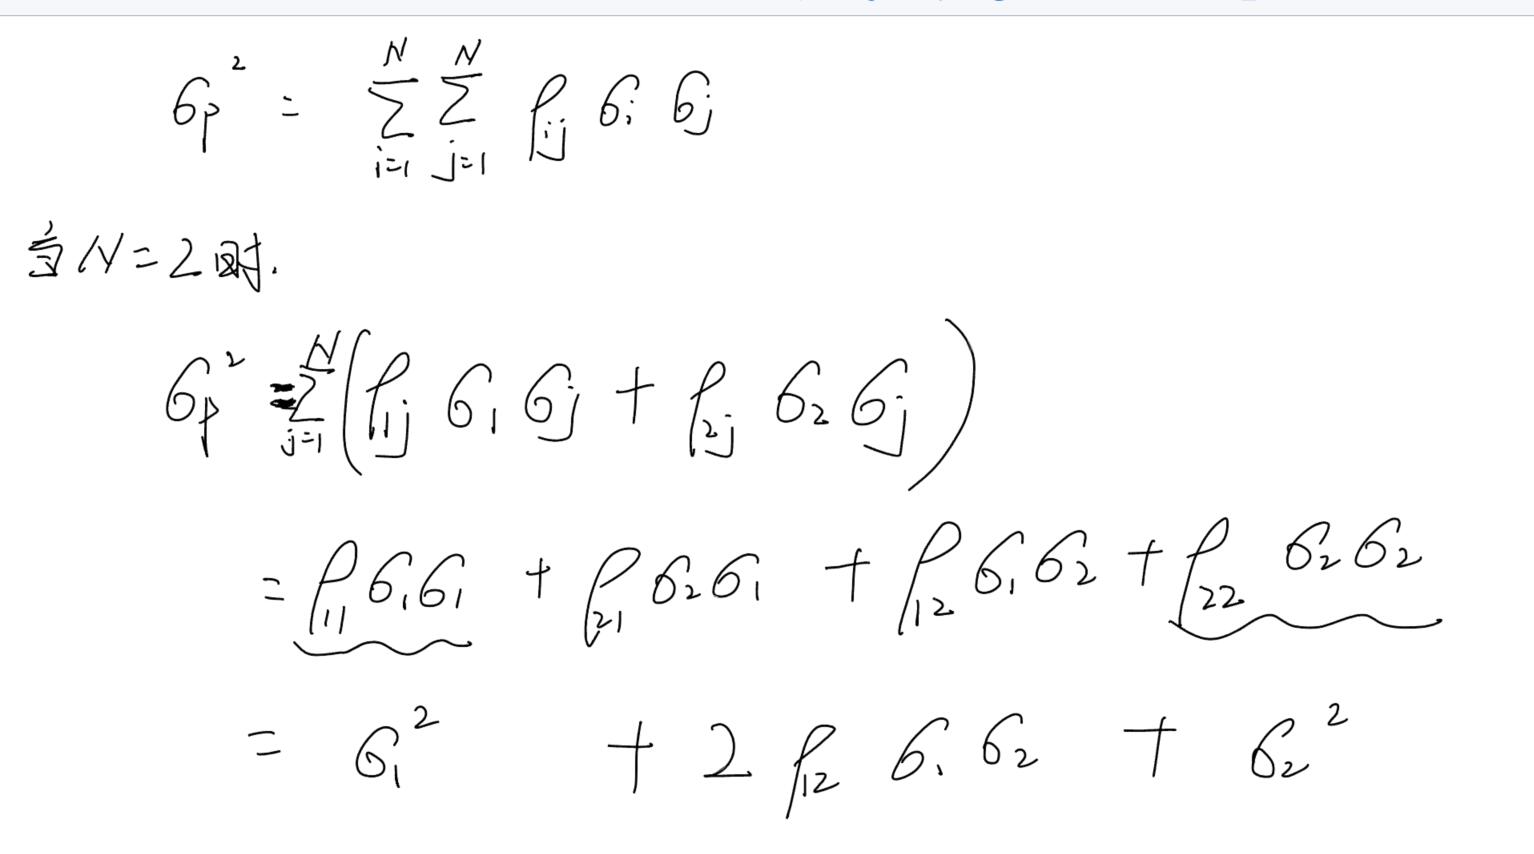 σₚ² = ∑_{i=1}^{N} ∑_{j=1}^{N} ρ_{ij} σ_i σ_j
当 N=2 时.
σₚ² = ∑_{j=1}^{N} (ρ_{1j} σ₁ σ_j + ρ_{2j} σ₂ σ_j)
= ρ₁₁ σ₁σ₁ + ρ₂₁ σ₂σ₁ + ρ₁₂ σ₁σ₂ + ρ₂₂ σ₂σ₂
= σ₁² + 2 ρ₁₂ σ₁ σ₂ + σ₂²